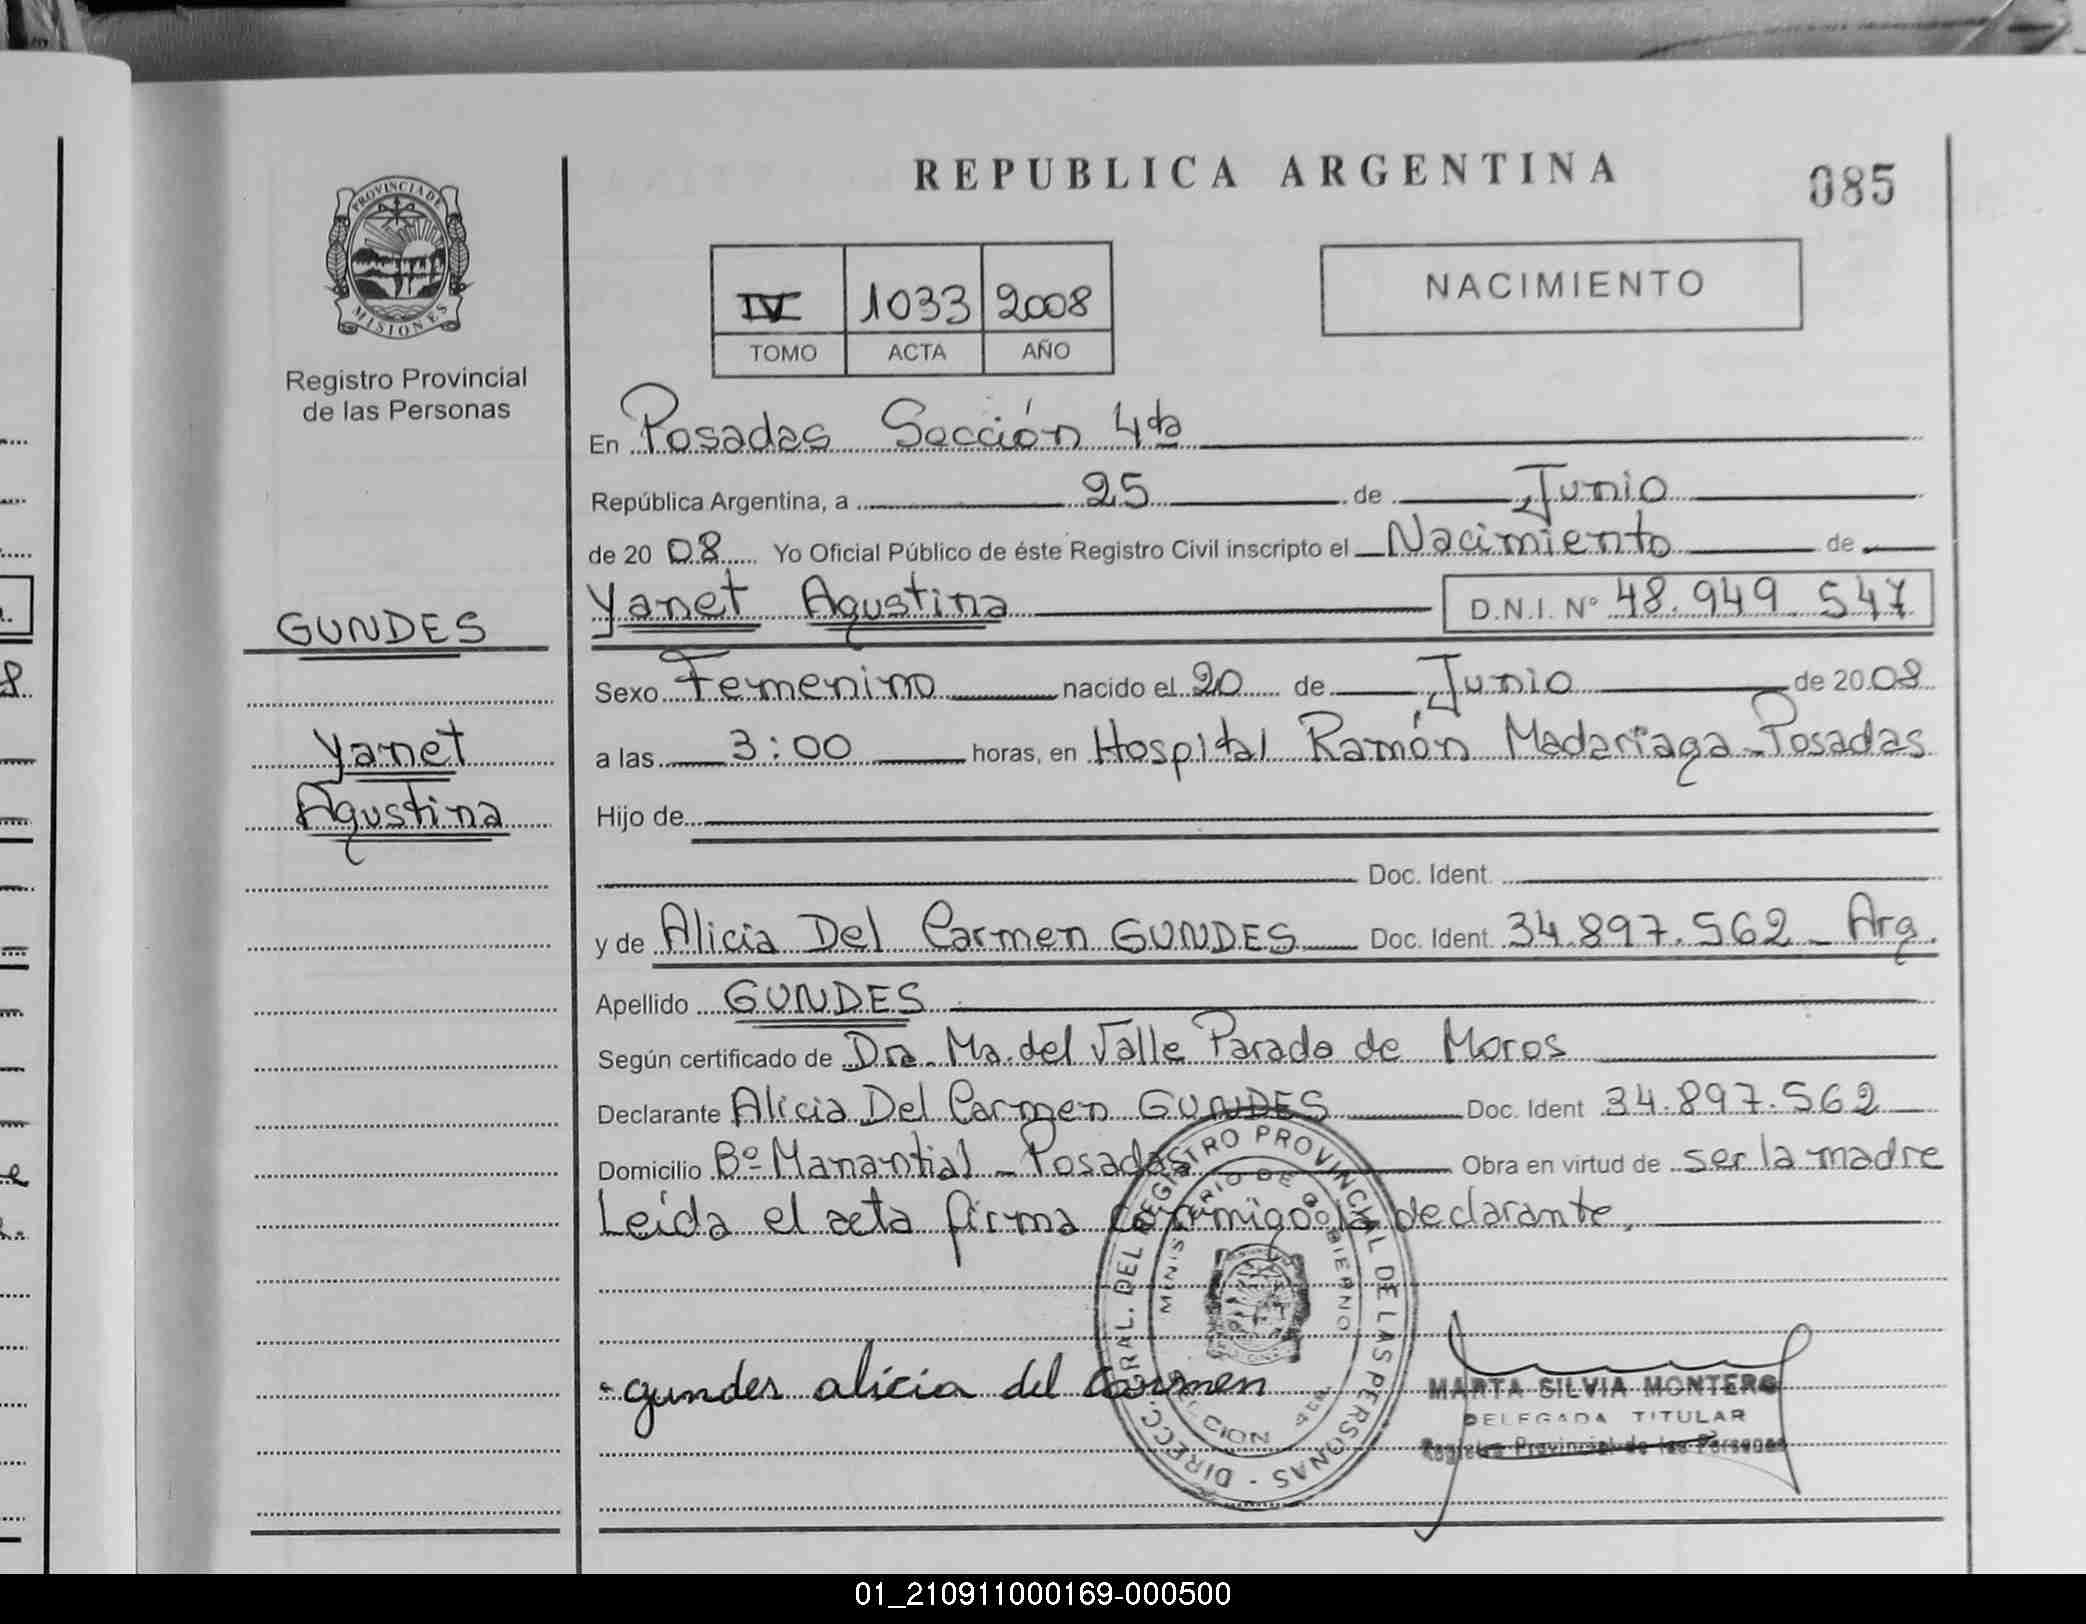 REPUBLICA ARGENTINA
085
PROVINCIA DE
MISIONES
Registro Provincial
de las Personas
IV 1033 2008
TOMO ACTA AÑO
NACIMIENTO
En Posadas Sección 4ta
República Argentina, a 25 de Junio
de 20 08 Yo Oficial Público de éste Registro Civil inscripto el Nacimiento de
Yanet Agustina D.N.I. Nº 48.949.547
GUNDES
Sexo Femenino nacido el 20 de Junio de 20 08
Yanet
a las 3:00 horas, en Hospital Ramón Madariaga - Posadas
Agustina
Hijo de
Doc. Ident.
y de Alicia Del Carmen GUNDES Doc. Ident. 34.897.562 - Arg.
Apellido GUNDES
Según certificado de Dra. Ma. del Valle Parada de Moros
Declarante Alicia Del Carmen GUNDES Doc. Ident 34.897.562
Domicilio Bº Manantial - Posadas Obra en virtud de ser la madre
Leída el acta firma conmigo la declarante,
DIRECC. GRAL. DEL REGISTRO PROVINCIAL DE LAS PERSONAS
MINISTERIO DE GOBIERNO
gundes alicia del carmen
MARTA SILVIA MONTERO
DELEGADA TITULAR
Registro Provincial de las Personas
01_210911000169-000500